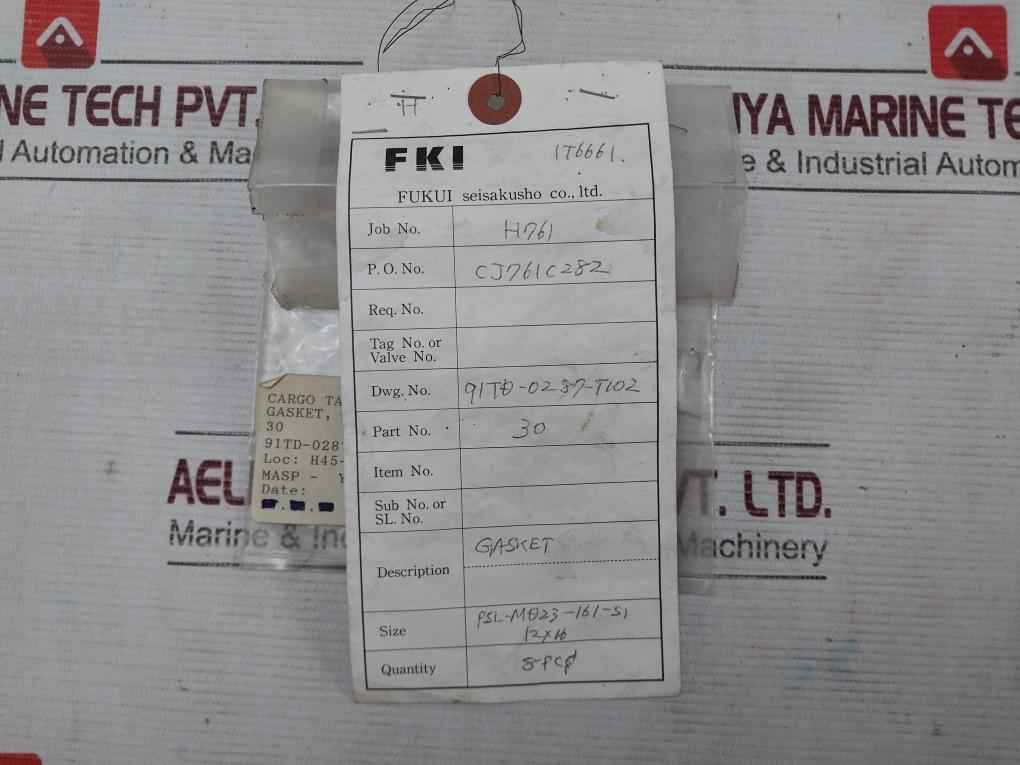 NE TECH PVT.
l Automation & Ma
IYA MARINE TE
e & Industrial Autom
H
FKI
1T6661.
FUKUI seisakusho co., ltd.
Job No. H761
P.O. No. CJ761C282
Req. No.
Tag No. or
Valve No.
Dwg. No. 91TD-0287-T102
Part No. 30
Item No.
Sub No. or
SL. No.
Description GASKET
Size PSL-MD23-161-S1
12×16
Quantity 8 pcs
CARGO TA
GASKET,
30
91TD-028
Loc: H45-
MASP - Y
Date:
AEL
VT. LTD.
Marine & In
Machinery